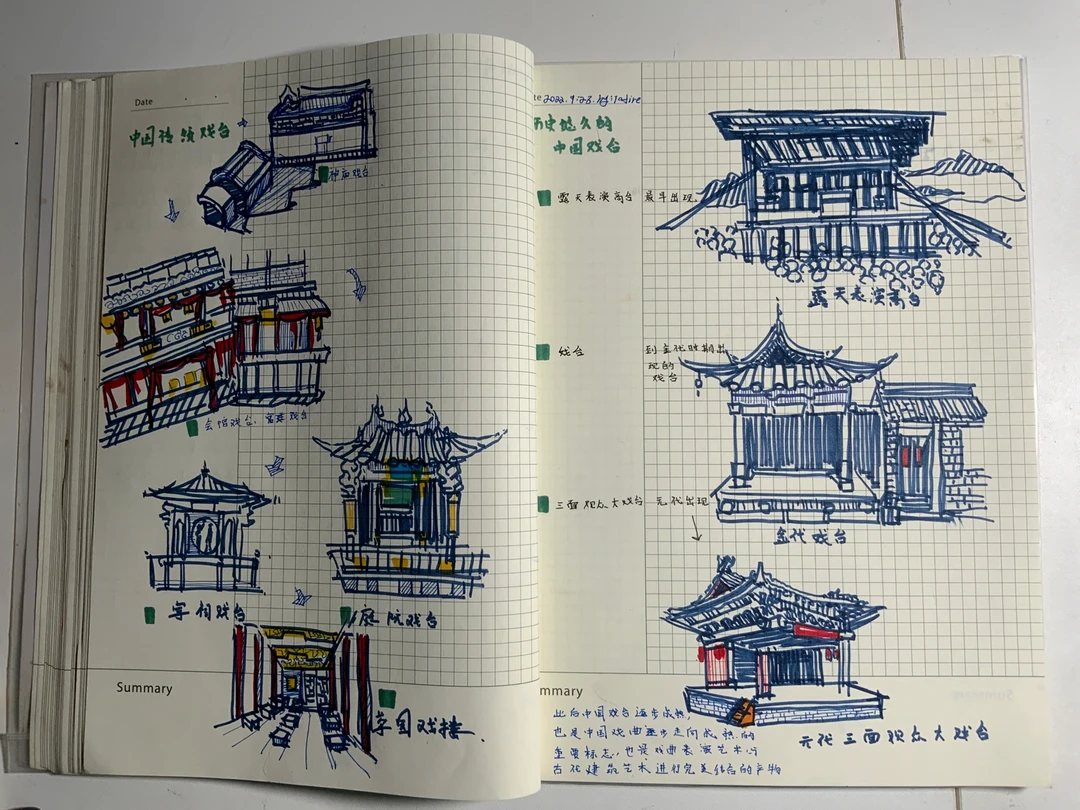 Date
中国传统戏台
神庙戏台
会馆戏台、宫廷戏台
庭院戏台
Summary
2022.9.28.
历史悠久的
中国戏台
露天表演高台 最早出现.
露天表演高台
戏台
到金代时期出
现的
戏台
金代戏台
三面观众大戏台 元代出现
元代三面观众大戏台
mmary
此后中国戏台逐步成熟,
也是中国戏曲逐步走向成熟的
重要标志,也是戏曲表演艺术与
古代建筑艺术进行完美结合的产物